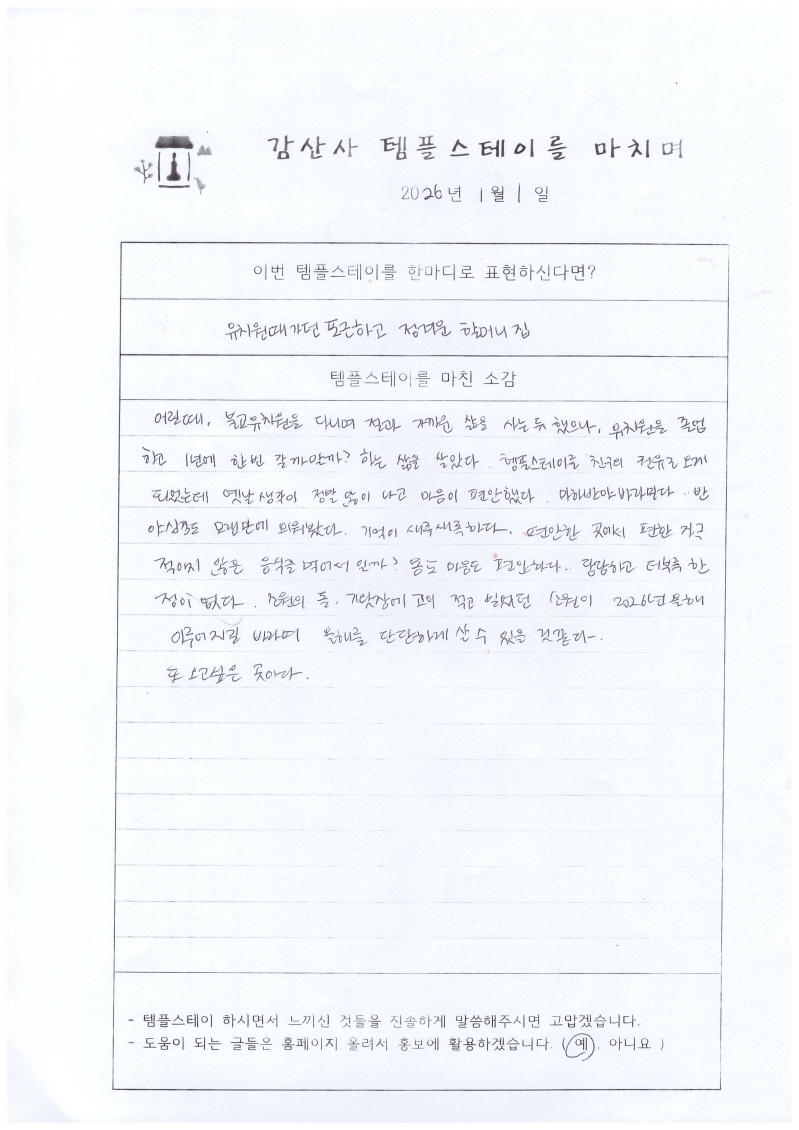 감산사 템플스테이를 마치며
2026년 1월 1일
이번 템플스테이를 한마디로 표현하신다면?
유치원때가던 포근하고 정겨운 할머니집
템플스테이를 마친 소감
어릴때, 불교유치원을 다니며 절과 가까운 삶을 사는듯 했으나, 유치원을 졸업
하고 1년에 한번 갈까말까? 하는 삶을 살았다. 템플스테이를 친구의 권유로 오게
되었는데 옛날생각이 정말 많이 나고 마음이 편안했다. 마하반야바라밀다.. 반
야심경도 오랜만에 외워봤다. 기억이 새록새록하다. 편안한 곳에서 편한
적이지 않은 음식을 먹어서 인가? 몸도 마음도 편안하다.. 답답하고 더부룩 한
정이 없다. 소원의 돌, 기왓장에 고의 적고 빌었던 소원이 2026년 올해
이루어지길 바라며 올해를 단단하게 살 수 있을 것같다.
또 오고싶은 곳이다.
- 템플스테이 하시면서 느끼신 것들을 진솔하게 말씀해주시면 고맙겠습니다.
- 도움이 되는 글들은 홈페이지 올려서 홍보에 활용하겠습니다. ( 예, 아니요 )